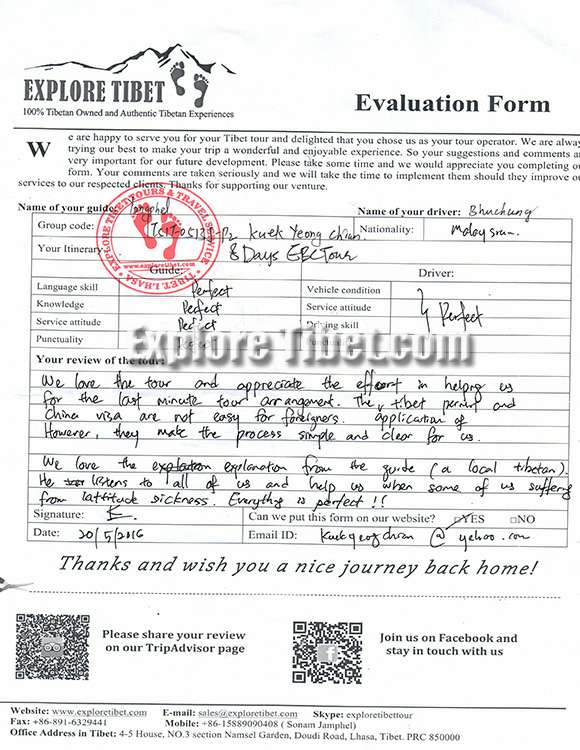 EXPLORE TIBET
100% Tibetan Owned and Authentic Tibetan Experiences
Evaluation Form
We are happy to serve you for your Tibet tour and delighted that you chose us as your tour operator. We are alway
trying our best to make your trip a wonderful and enjoyable experience. So your suggestions and comments a
very important for our future development. Please take some time and we would appreciate you completing ou
form. Your comments are taken seriously and we will take the time to implement them should they improve ou
services to our respected clients. Thanks for supporting our venture.
Name of your guide: Name of your driver: Bhuchung
Group code: Kuek Yeong Chian. Nationality: Malaysian.
Your Itinerary 8 Days EBC Tour
EXPLORE TIBET TOURS & TRAVEL SERVICE
www.exploretibet.com
TIBET. LHASA
Guide: Driver:
Language skill Perfect Vehicle condition
Knowledge Perfect Service attitude Perfect
Service attitude Perfect Driving skill
Punctuality Punctuality
Explore Tibet.com
Your review of the tour:
We love the tour and appreciate the effort in helping us
for the last minute tour arrangement. The tibet permit and
China visa are not easy for foreigners. application of
However, they make the process simple and clear for us.
We love the explanation from the guide (a local tibetan).
He listens to all of us and help us when some of us suffering
from lattitude sickness. Everything is perfect !!
Signature: Can we put this form on our website? ☑YES □NO
Date: 20/5/2016 Email ID: @ yahoo.com
Thanks and wish you a nice journey back home!
Please share your review
on our TripAdvisor page
Join us on Facebook and
stay in touch with us
Website: www.exploretibet.com E-mail: sales@exploretibet.com Skype: exploretibettour
Fax: +86-891-6329441 Mobile: +86-15889090408 ( Sonam Jamphel)
Office Address in Tibet: 4-5 House, NO.3 section Namsel Garden, Doudi Road, Lhasa, Tibet. PRC 850000